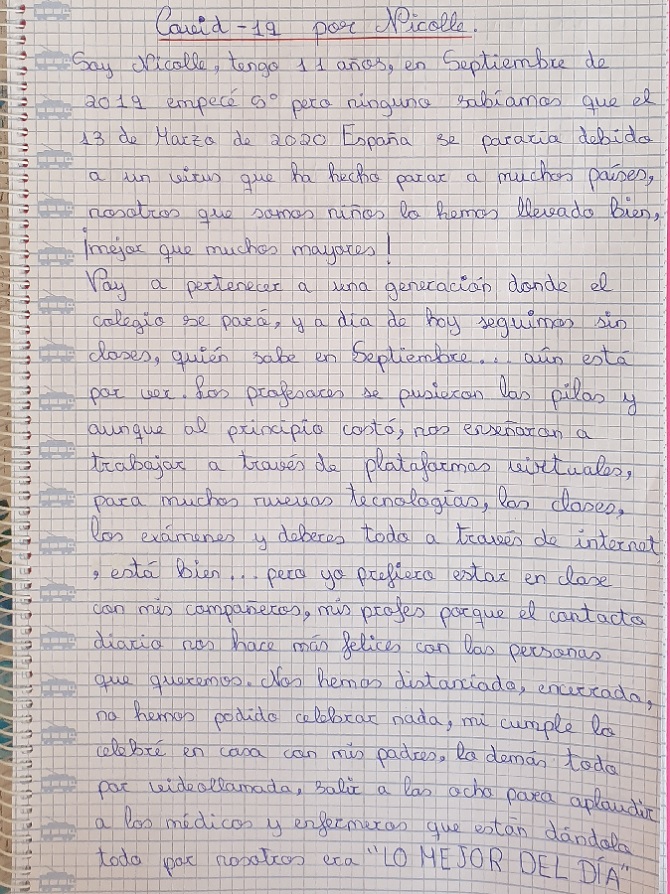 Covid-19 por Nicolle.
Soy Nicolle, tengo 11 años, en Septiembre de
2019 empecé 5º pero ninguno sabíamos que el
13 de Marzo de 2020 España se pararia debido
a un virus que ha hecho parar a muchos países,
nosotros que somos niños lo hemos llevado bien,
¡mejor que muchos mayores!
Voy a pertenecer a una generación donde el
colegio se paró, y a día de hoy seguimos sin
clases, quién sabe en Septiembre... aún está
por ver. Los profesores se pusieron las pilas y
aunque al principio costó, nos enseñaron a
trabajar a través de plataformas virtuales,
para muchos nuevas tecnologías, las clases,
los exámenes y deberes todo a través de internet
, está bien... pero yo prefiero estar en clase
con mis compañeros, mis profes porque el contacto
diario nos hace más felices con las personas
que queremos. Nos hemos distanciado, encerrado,
no hemos podido celebrar nada, mi cumple lo
celebré en casa con mis padres, lo demás todo
por videollamada, salir a las ocho para aplaudir
a los médicos y enfermeros que están dándolo
todo por nosotros era "LO MEJOR DEL DÍA"